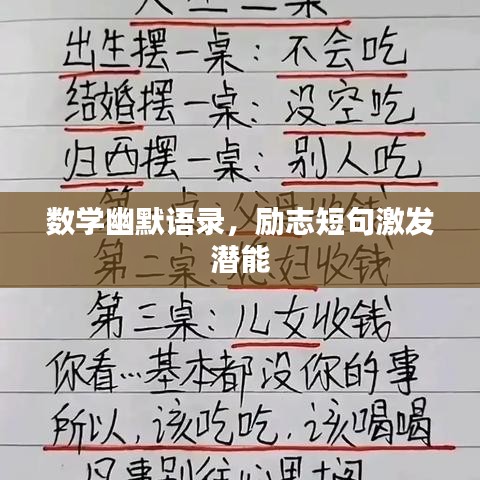 人生三桌
出生摆一桌：不会吃
结婚摆一桌：没空吃
归西摆一桌：别人吃
第一桌：父母收钱
数学幽默语录，励志短句激发
潜能
第二桌：媳妇收钱
第三桌：儿女收钱
你看…基本都没你的事
所以，该吃吃，该喝喝
凡事别往心里搁